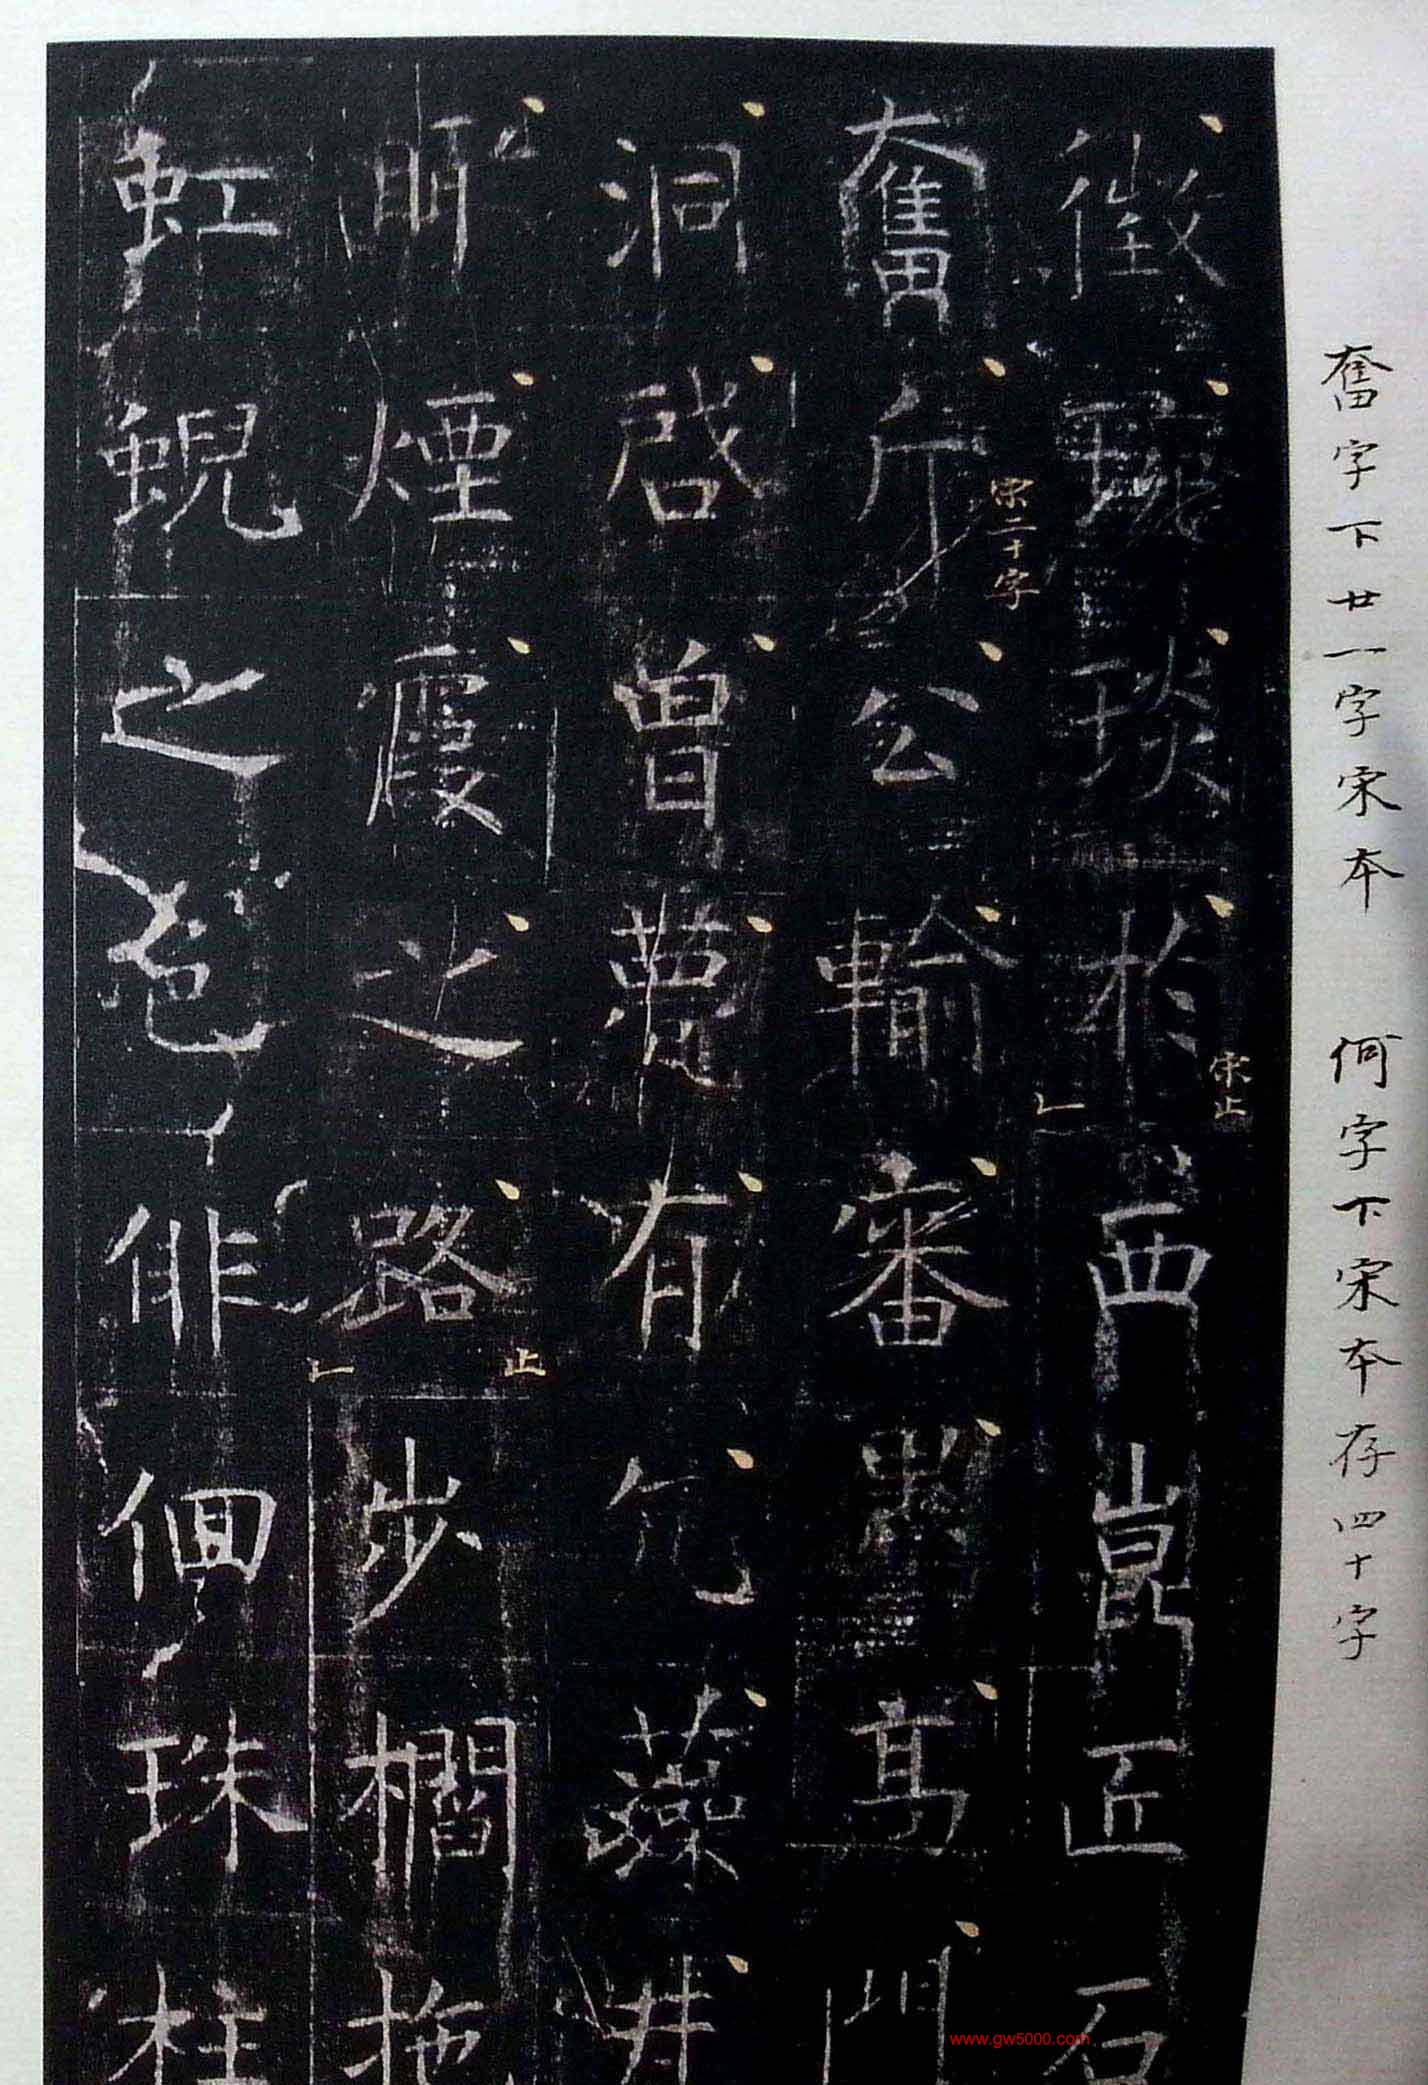 奮字下廿一字宋本 何字下宋本存四十字
徵琬琰於西崑匠石
宋止
奮斤公輸審墨高門
宋二十字
洞啓曾薨有仡藻井
眀煙霞之路步櫩拖
止
虹蜺之色俳佪珠柱
www.gw5000.com